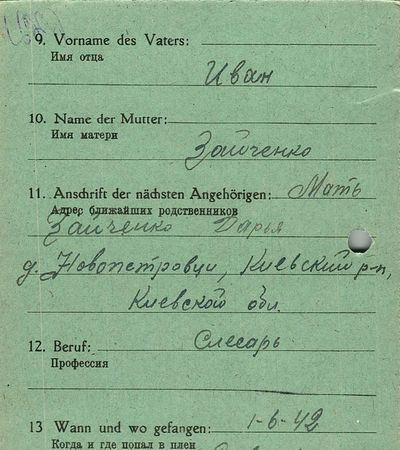 9. Vorname des Vaters:
Имя отца
Иван
10. Name der Mutter:
Имя матери
Зайченко
11. Anschrift der nächsten Angehörigen: Мать
Адрес ближайших родственников
Зайченко Дарья
д. Новопетровци, Киевский р-н,
Киевской обл.
12. Beruf: Слесарь
Профессия
13 Wann und wo gefangen: 1-6-42
Когда и где попал в плен